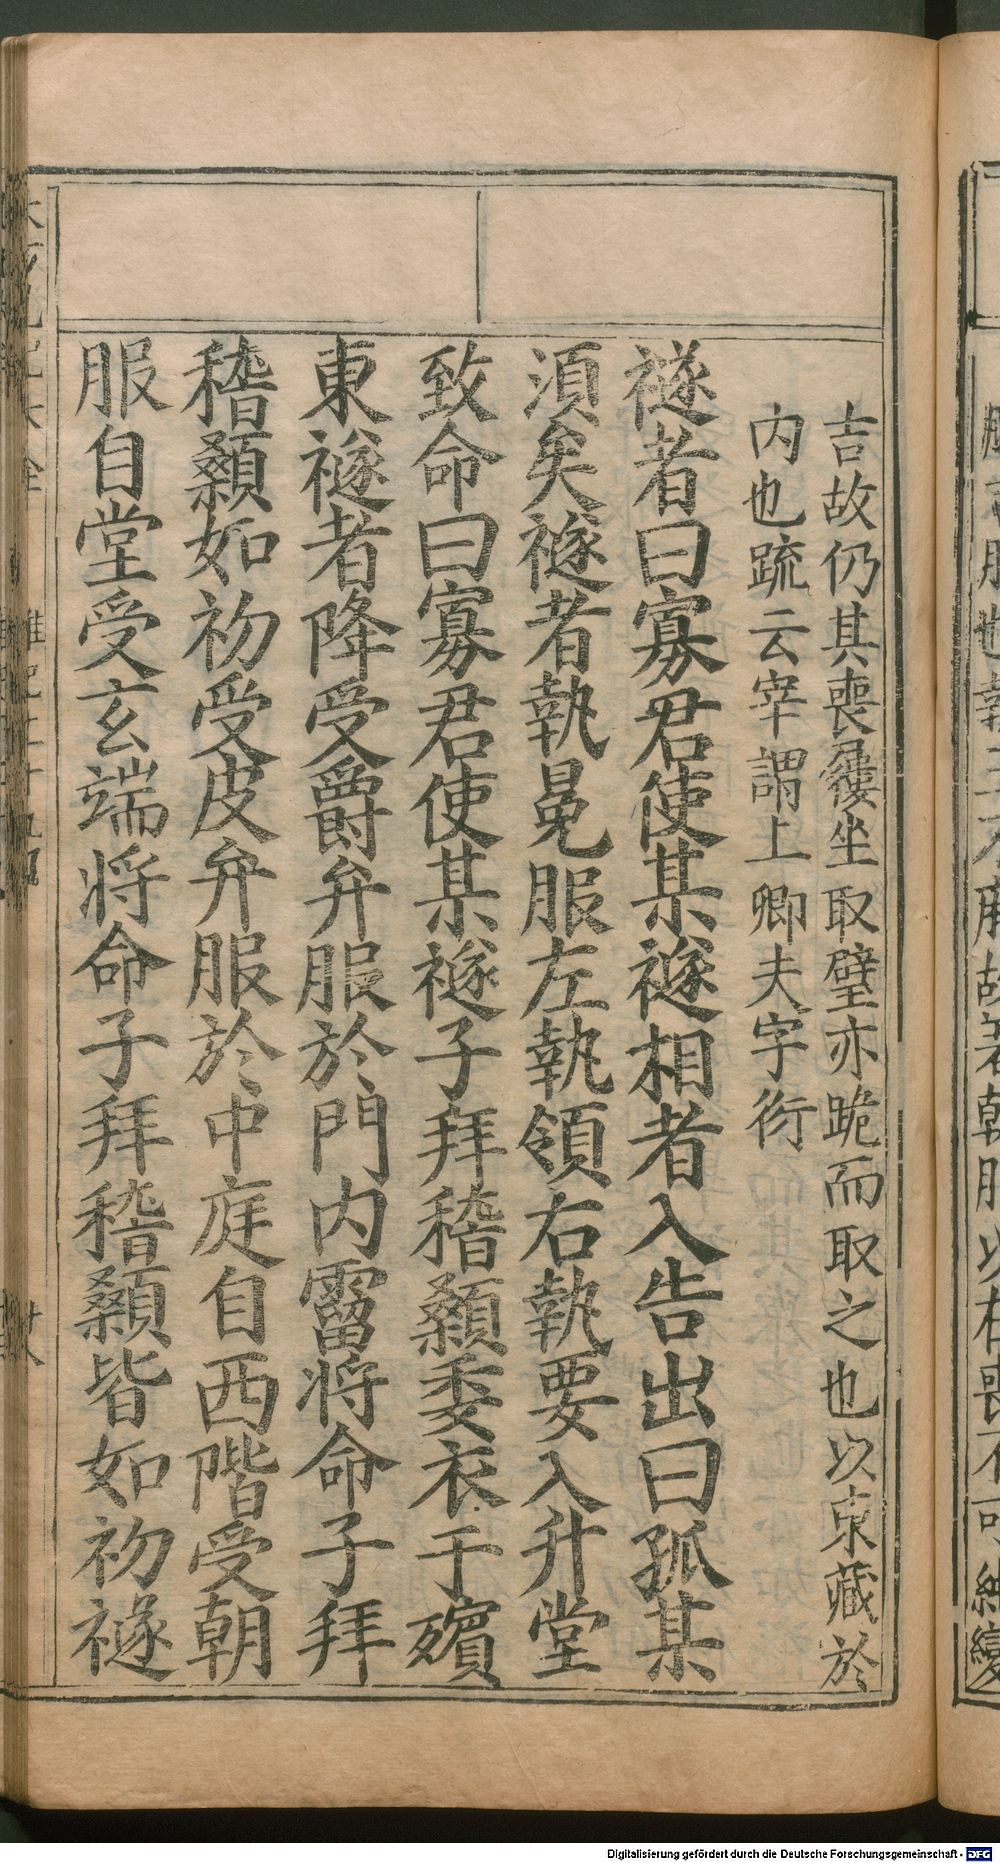 吉故仍其喪屨坐取璧亦跪而取之也以東藏於
内也䟽云宰謂上卿夫字衍
襚者曰寡君使某襚相者入告出曰孤某
湏矣襚者執冕服左執領右執要入升堂
致命曰寡君使某襚子拜稽顙委衣于殯
東襚者降受爵弁服於門内霤将命子拜
稽顙如初受皮弁服於中庭自西階受朝
服自堂受玄端将命子拜稽顙皆如初襚
Digitalisierung gefördert durch die Deutsche Forschungsgemeinschaft - DFG